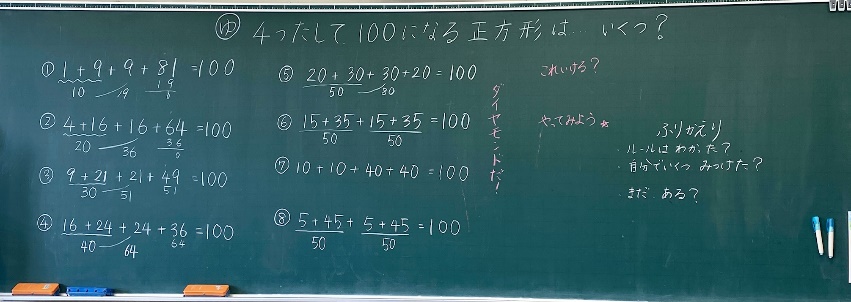 ゆ 4つたして100になる正方形は… いくつ?
① 1+9+9+81=100
10 19 19
0
② 4+16+16+64=100
20 36 36
0
③ 9+21+21+49=100
30 51 51
④ 16+24+24+36=100
40 64 64
⑤ 20+30+30+20=100
50 80
⑥ 15+35+15+35=100
50 50
⑦ 10+10+40+40=100
⑧ 5+45+5+45=100
50 50
ダイヤモンドだ!
これいける?
やってみよう★
ふりかえり
・ルールはわかった?
・自分でいくつ みつけた?
・まだ ある?